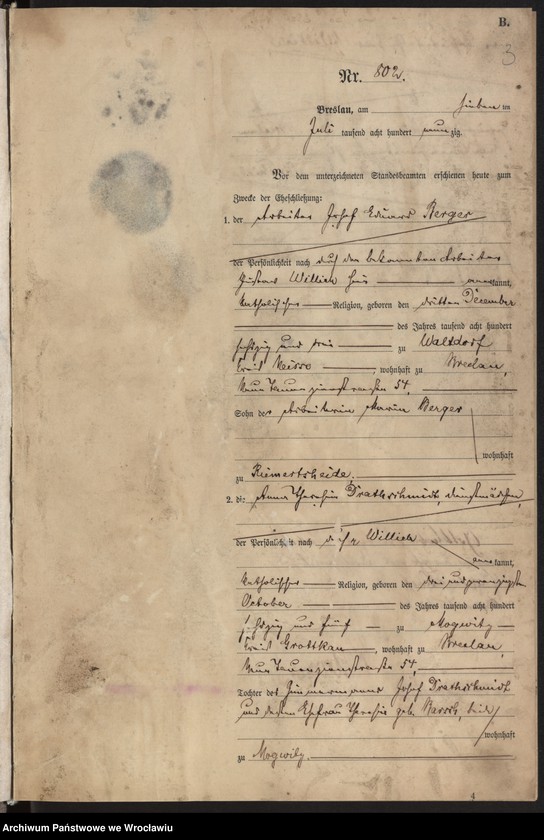 B.
3
Nr. 802.
Breslau, am sieben ten
Juli tausend acht hundert neunzig.
Vor dem unterzeichneten Standesbeamten erschienen heute zum
Zwecke der Eheschließung:
1. der Arbeiter Josef Eduard Berger
der Persönlichkeit nach durch den bekannten Arbeiter
Gustav Willich hier anerkannt,
katholischer Religion, geboren den dritten December
des Jahres tausend acht hundert
sechszig und drei zu Waltdorf
Kreis Neisse, wohnhaft zu Breslau,
Neue Tauenzienstraße 54,
Sohn der Arbeiterin Maria Berger
wohnhaft
zu Reimertsheide.
2. die Anna Theresia Drathschmidt, Dienstmädchen,
der Persönlichkeit nach durch Willich
anerkannt,
katholischer Religion, geboren den dreiundzwanzigsten
October des Jahres tausend acht hundert
sechszig und fünf zu Mogwitz
Kreis Grottkau, wohnhaft zu Breslau,
Neue Tauenzienstraße 54,
Tochter des Zimmermanns Josef Drathschmidt
und dessen Ehefrau Theresia geb.
wohnhaft
zu Mogwitz.
4
Archiwum Państwowe we Wrocławiu